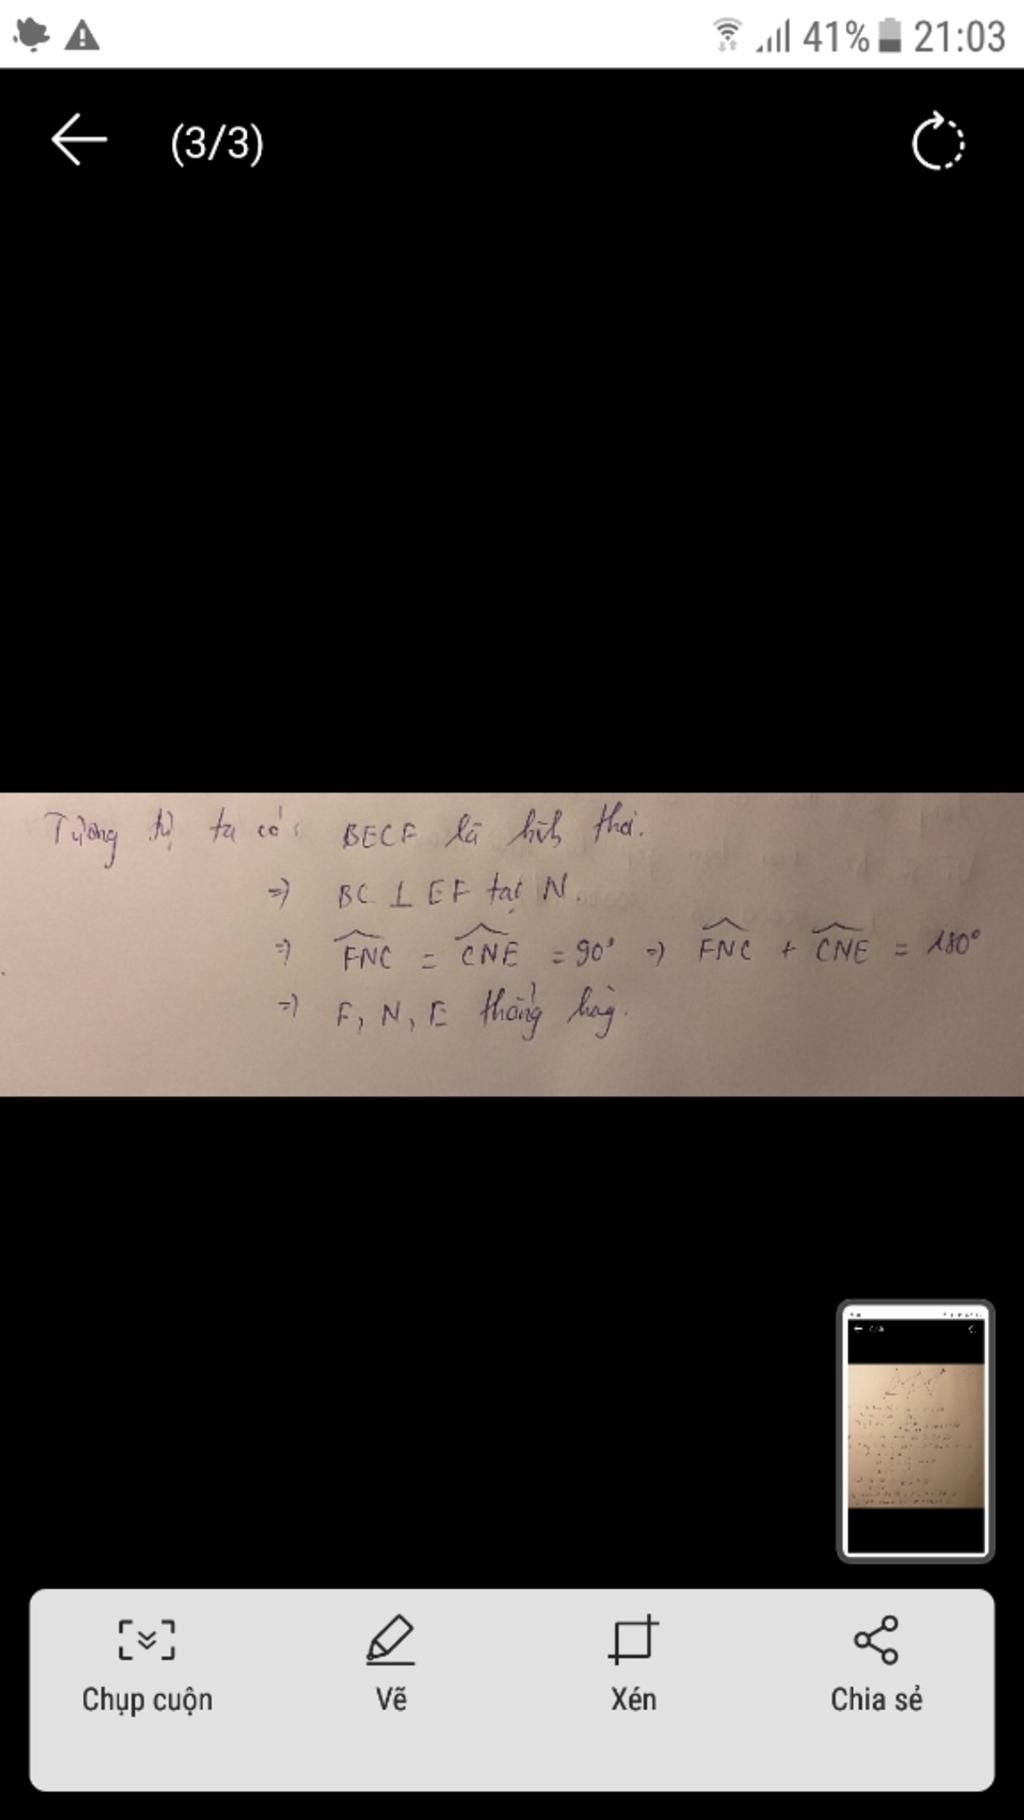 41% 21:03
(3/3)
Tương tự ta có: BECF là hình thoi.
=) BC ⊥ EF tại N.
=) FNC = CNE = 90° =) FNC + CNE = 180°
=) F, N, E thẳng hàng.
Chụp cuộn Vẽ Xén Chia sẻ